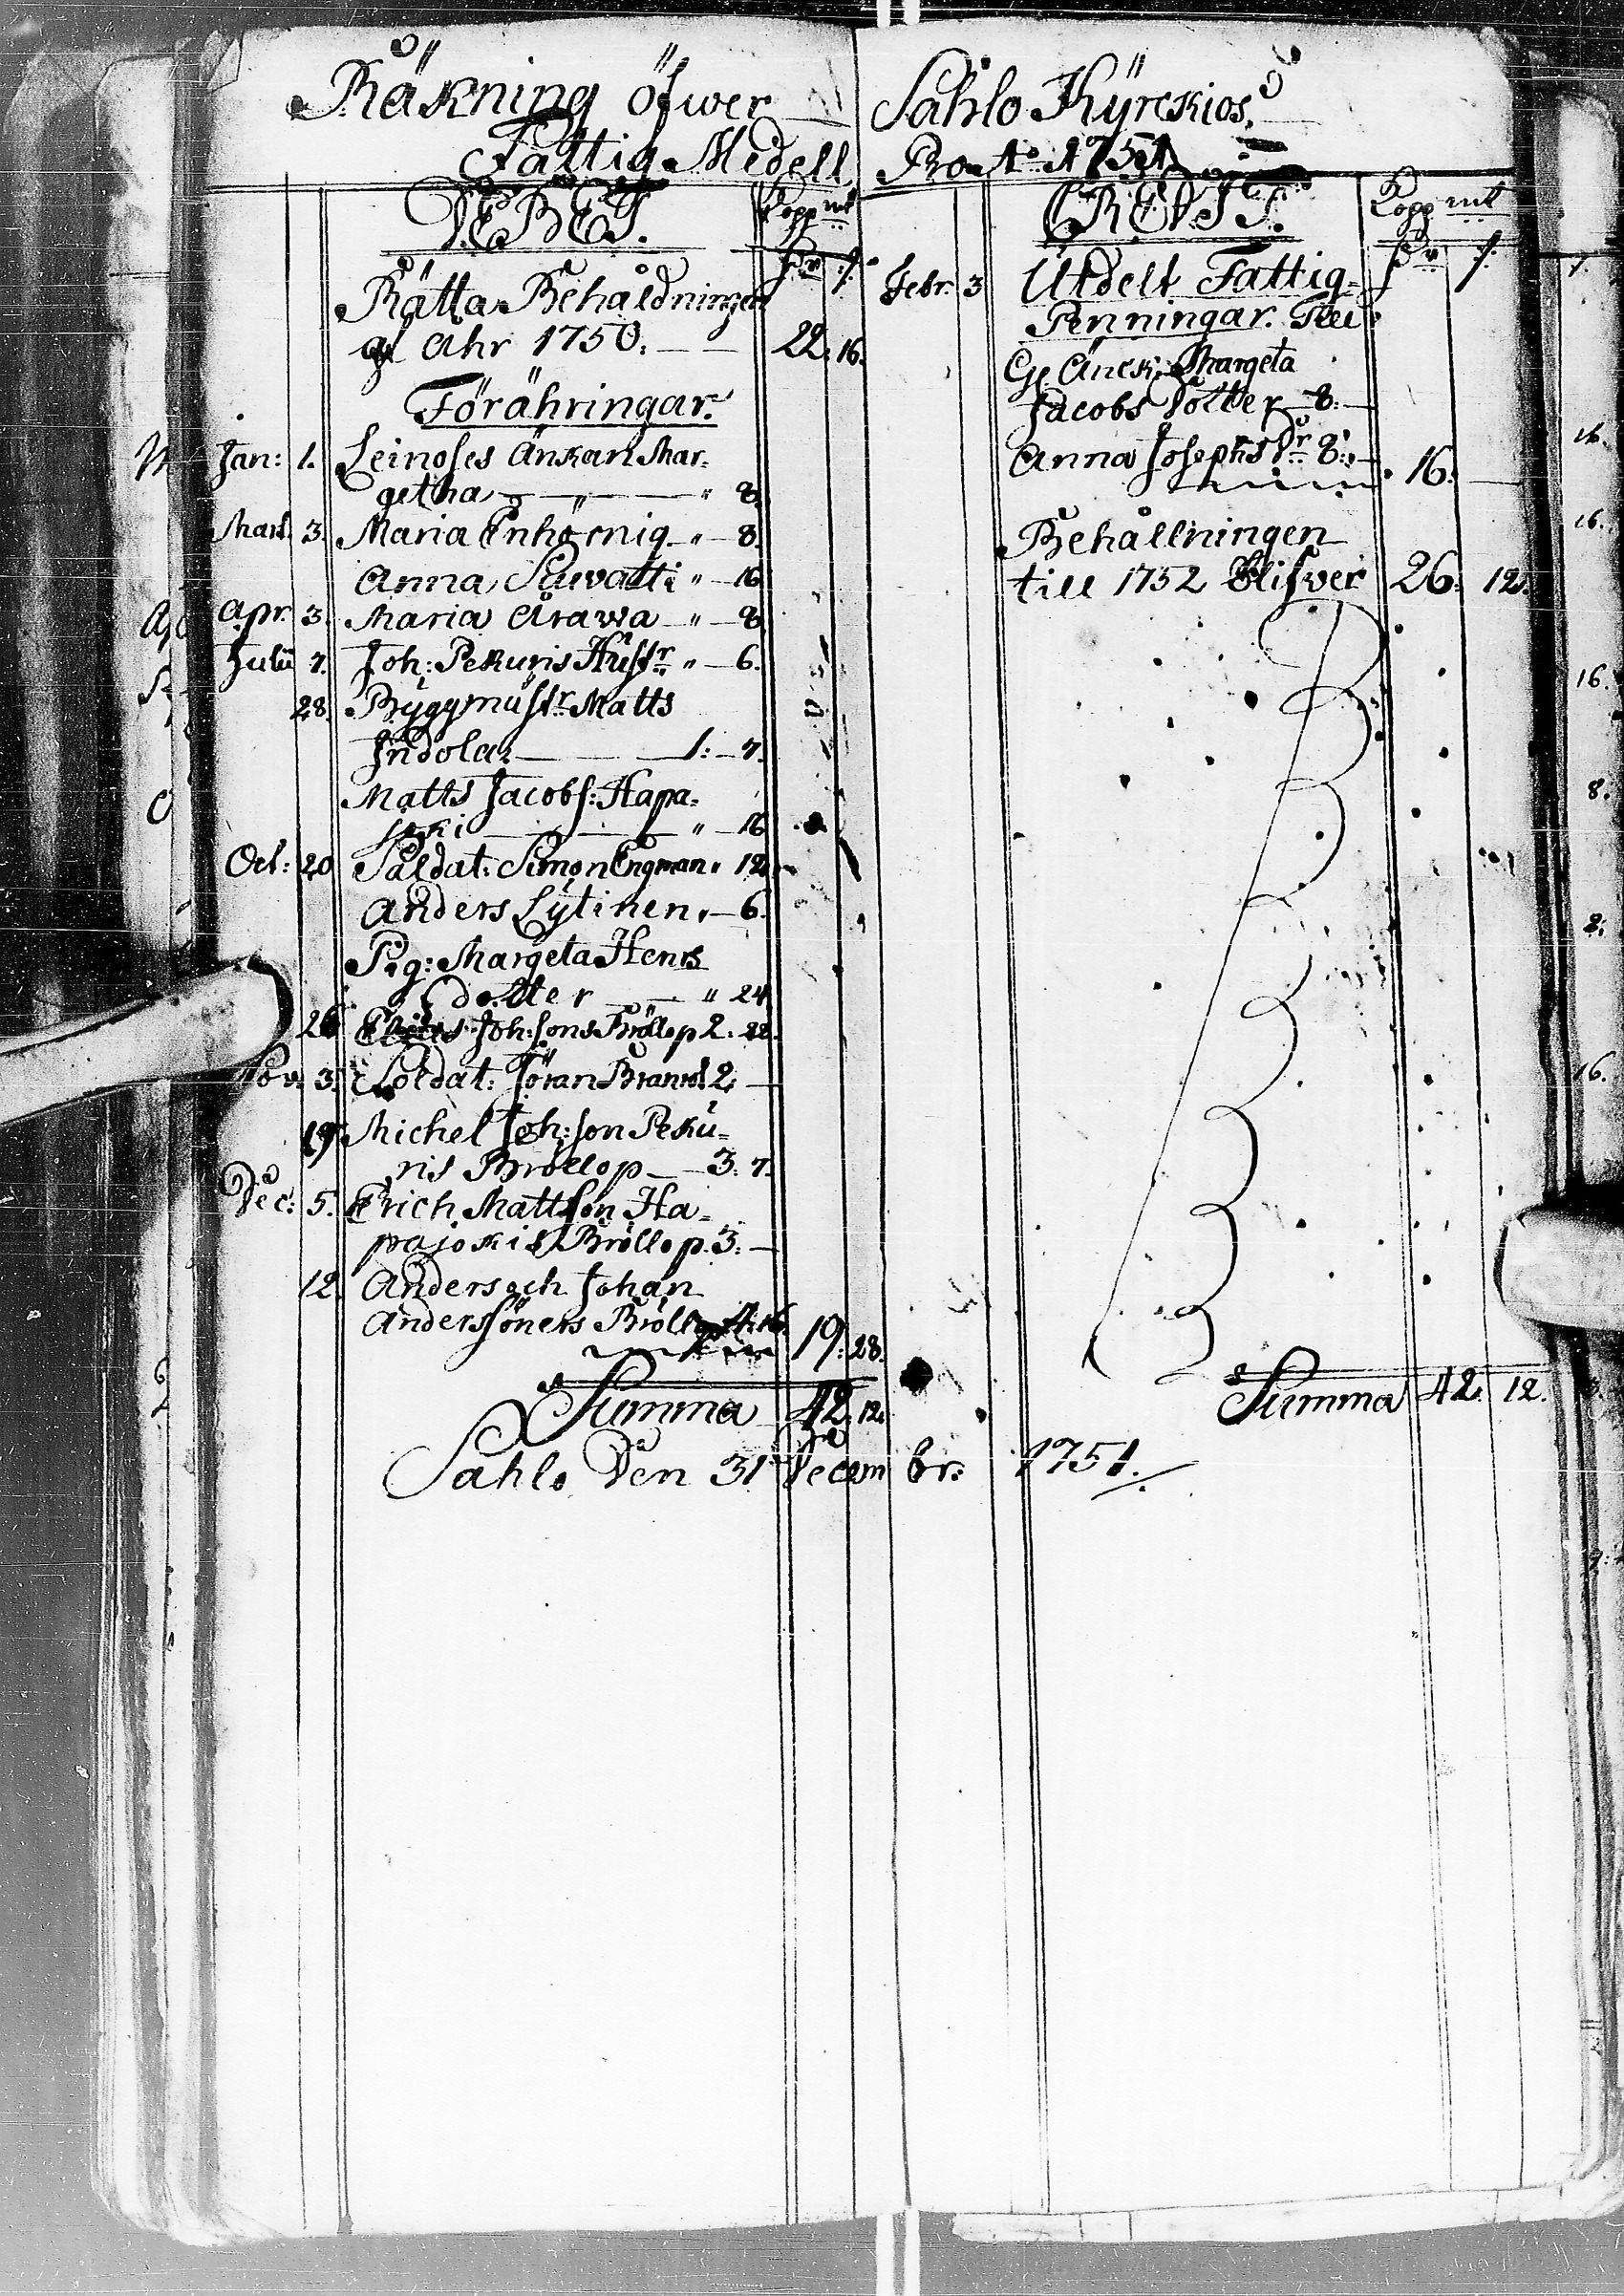 Räkning öfwer
Fattig Medell
DEBET.
Kopp mt
Dr s.
Rätta Behåldningen
af Ahr 1750. 22. 16.
Förähringar.
Jan: 1. Leinoses Änkan Mar=
getha " 8.
Mart. 3. Maria Enhörnig " 8.
Anna " 16.
Apr. 3. Maria Arawa " 8.
Julii 7. Joh: Pekuris Hustr " 6.
28. Byggmästr Matts
Indola 1: 7.
Matts Jacobs: Hapa=
joki " 16.
Oct: 20 Saldat: Simon Engman " 12.
Anders Lytinen " 6.
Pig: Margeta Henrs
dotter " 24.
26 Joh:sons Bröllop 2: 22.
Nov. 3. Soldat: Jöran 2:
19. Michel Joh:son Peku=
ris Bröllop 3: 7.
Dec: 5. Erich Mattson Ha=
pajokis Bröllop 3:
12. Anders och Johan
Anderssöners Bröllop 4: 16.
19: 28.
Summa 42. 12.
Sahlo Den 31 Decem
Sahlo Kyrckios
Pro Ao 1751
CREDIT.
Kopp mt
Dr s.
Febr: 3 Utdelt Fattig=
Penningar. Till
Margeta
Jacobs Dotter 8:
Anna Josephs Dr 8: 16.
Behållningen
till 1752 blifver 26: 12.
Summa 42. 12.
br: 1751.